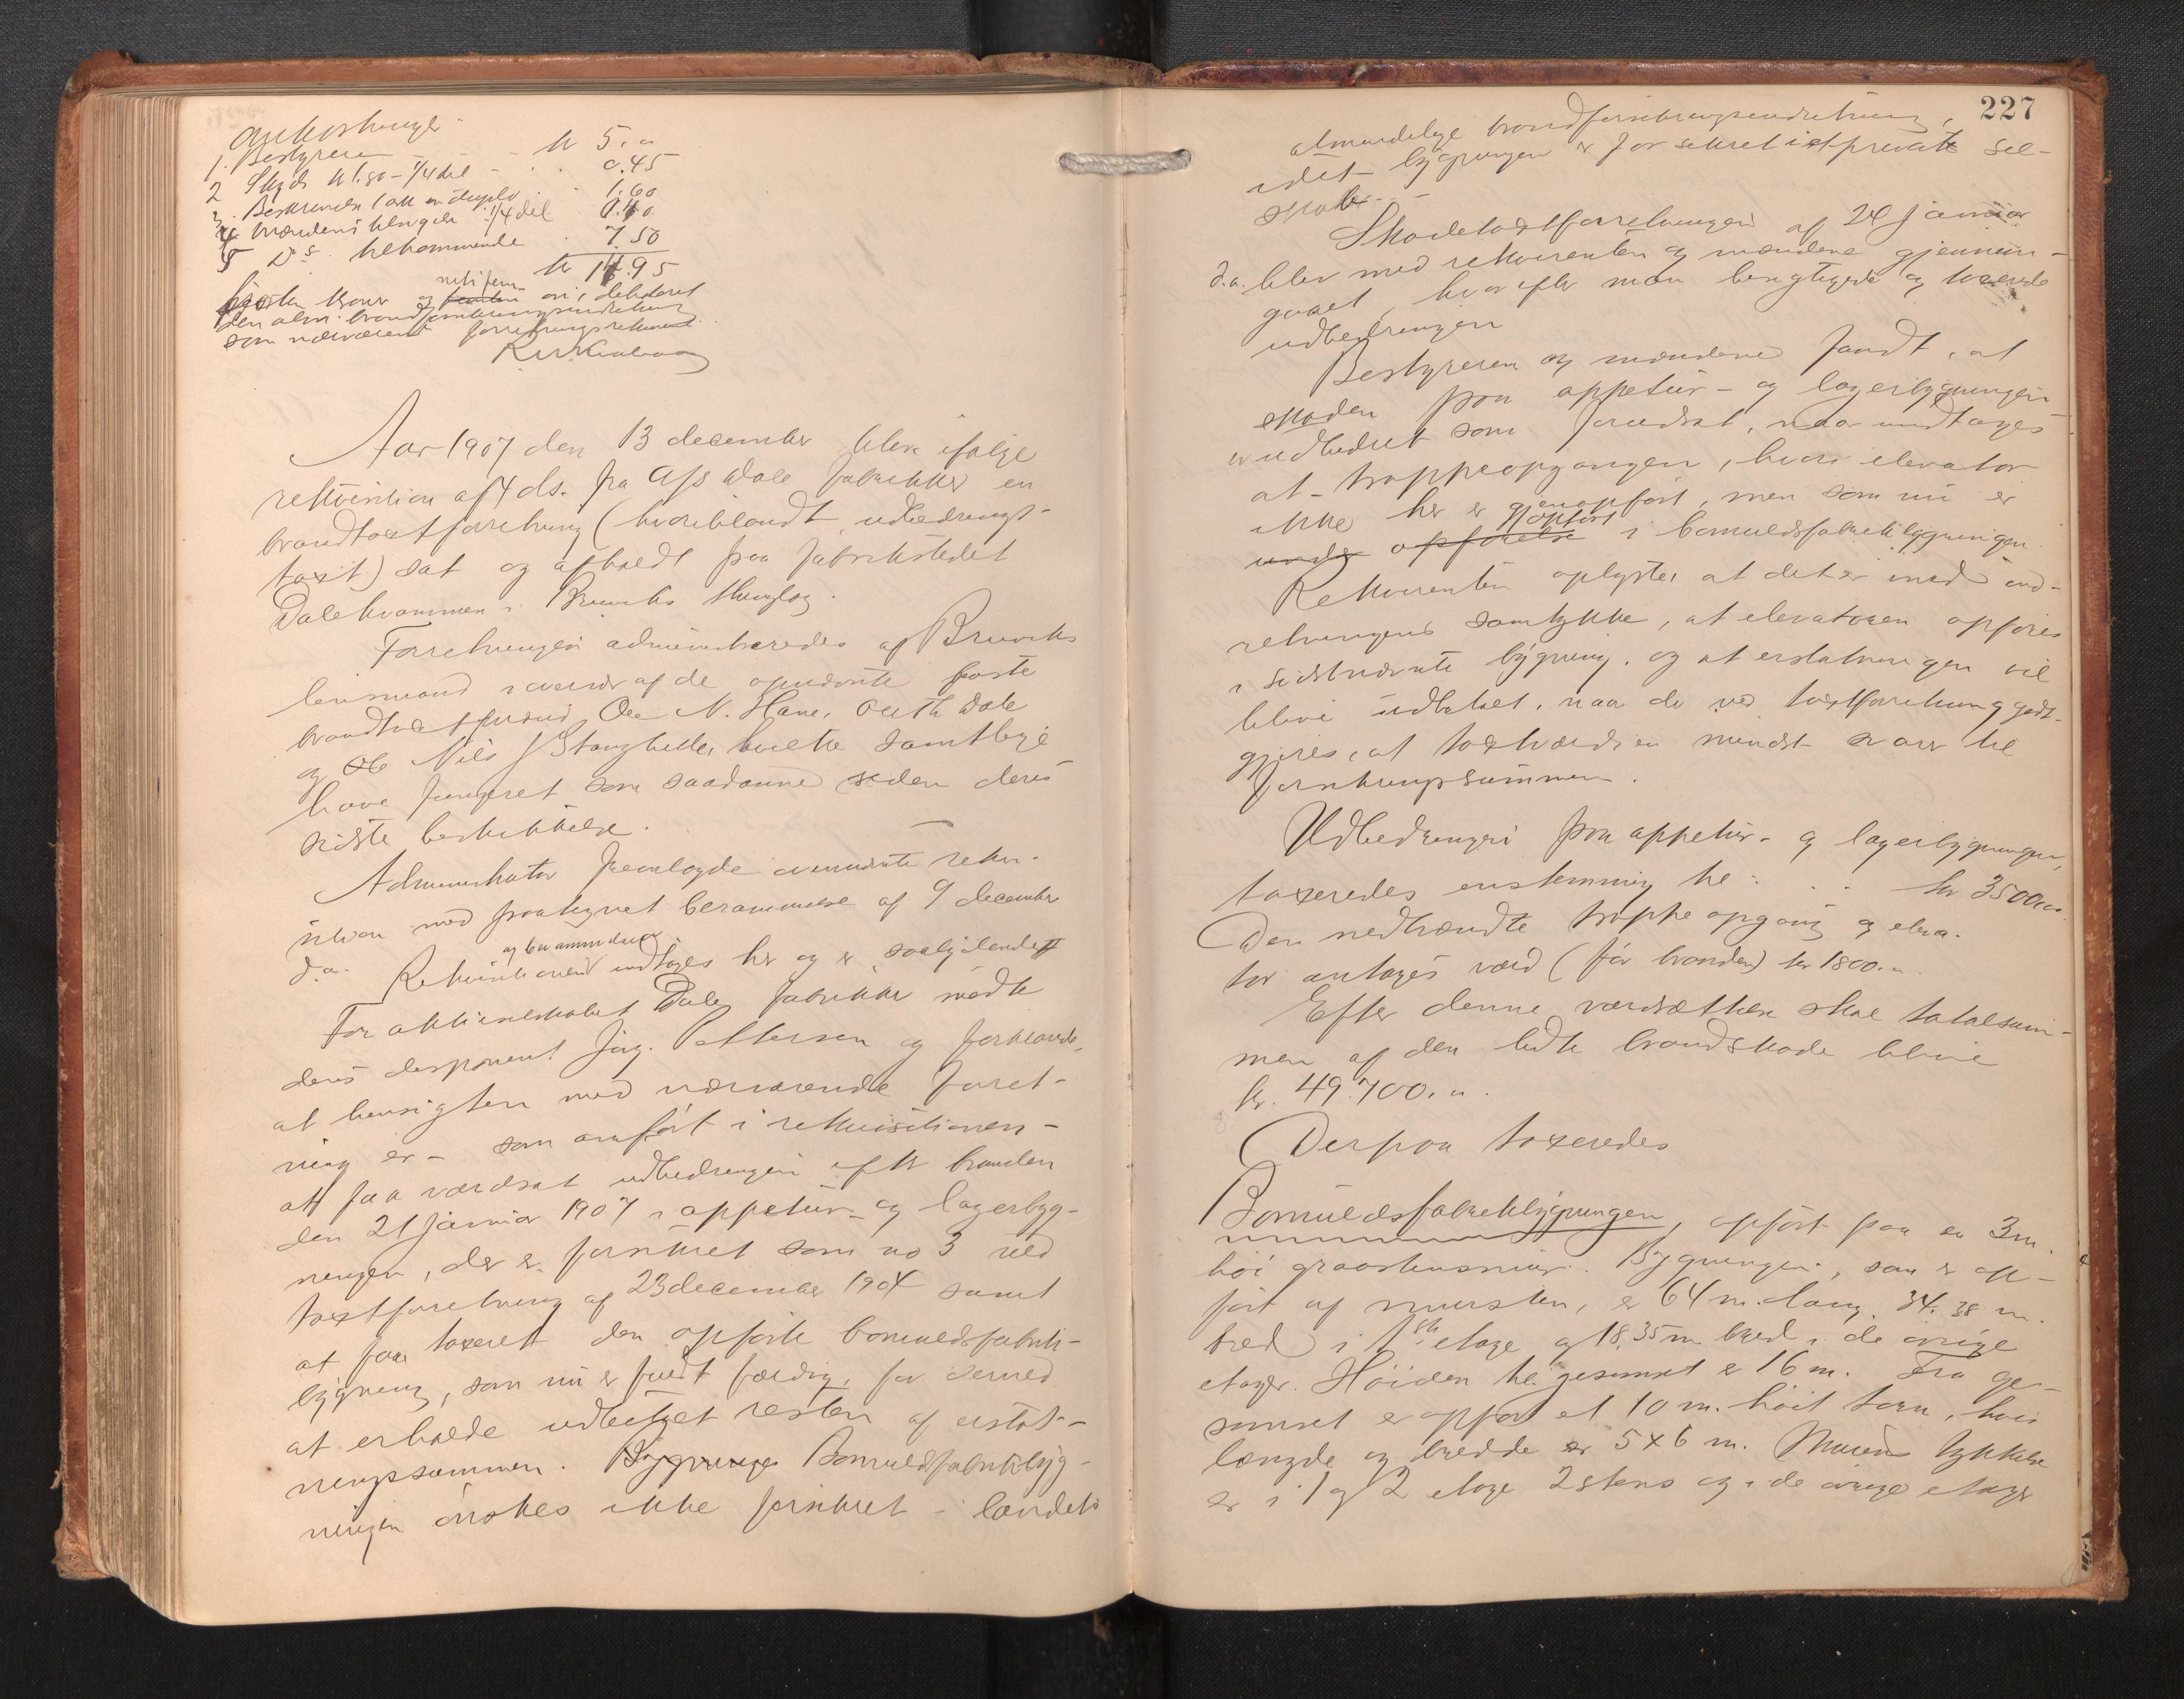 Omkostninger
1. Bestyreren - - - kr 5. „
2 Skyds kl. 80 - 1/4 del - . . 0.45
3. Beskrivelse 1 ark in duplo . . 1.60
4 mændenes 1/4 del . 0.40
5 Ds tilkommende . 7.50
kr 14.95
kroner og nitifem øre, debiteret
den alm. brandforsikringsindretning
som nærværende forretnings rekvirent.

Aar 1907 den 13 december blev ifølge
rekvisition af 4 ds. fra A/S Dale fabrikker en
brandtaxtforretning (hvoriblandt udbedrings-
taxt) sat og afholdt paa fabrikstedet
Dalekvammen i Bruviks thinglag.
Forretningen administreredes af Bruviks
lensmand i nærvær af de opnævnte faste
brandtaxtmænd Ole N. Hane, Dale
og Nils J Stanghelle, hvilke samtlige
have fungeret som saadanne siden deres
sidste beskikkelse.
Administrator fremlagde ovennævnte rekvi-
sition med paategnet berammelse af 9 december
d.a. Rekvisitionen og berammelsen indtages her og er saalydende #
For aktieselskabet Dale fabrikker mødte
dens disponent Jørg. Pettersen og forklarede,
at hensigten med nærværende forret-
ning er - som anført i rekvisitionen -
at faa værdsat udbedringen efter branden
den 21 januar 1907 i appetur- og lagerbyg-
ningen, der er forsikret som no 3 ved
taxtforretning af 23 december 1904 samt
at faa taxeret den opførte bomuldsfabrik-
bygning, som nu er fuldt færdig, for derved
at erholde udbetalt resten af erstat-
ningssummen. Bygninge Bomuldsfabrikbyg-
ningen ønskes ikke forsikret i landets

227
almindelige brandforsikringsindretning,
idet bygningen er forsikret i et privat sel-
skab.
Skadetaxtforretningen af 24 januar
d.a. blev med rekvirenten og mændene gjennem-
gaaet, hvorefter man besigtigede og taxerede
udbedringen
Bestyreren og mændene fandt, at
skaden paa appetur- og lagerbygningen
er udbedret som forudsat, naar undtages
at trappeopgangen, hvori elevator
ikke her er gjenopført, men som nu er
under opførelse opført i bomuldsfabrikbygningen.
Rekvirenten oplyste, at det er med ind-
retningens samtykke, at elevatoren opføres
i sidstnævnte bygning, og at erstatningen vil
blive udbetalt, naar de ved taxtforretning godt-
gjøres, at taxtværdien mindst svarer til
forsikringssummen.
Udbedringen paa appetur- og lagerbygningen,
taxeredes enstemmig til : . . kr 3500.„.
Den nedbrændte trappeopgang og eleva-
tor antages værd (før branden) kr 1800.„.
Efter denne værdsættelse skal totalsum-
men af den lidte brandskade blive
kr. 49.700.„.
Derpaa taxeredes
Bomuldsfabrikbygningen, opført paa en 3 m.
høi graastensmur. Bygningen, som er op-
ført af mursten, er 64 m. lang, 34,38 m.
bred i 1ste etage og 18,35 m bred i de øvrige
etager. Høiden til gesimset er 16 m. Fra ge-
simset er opført et 10 m. høit taarn, hvis
længde og bredde er 5 x 6 m. Murens tykkelse
er i 1 og 2 etage 2 stens og i de øvrige etager